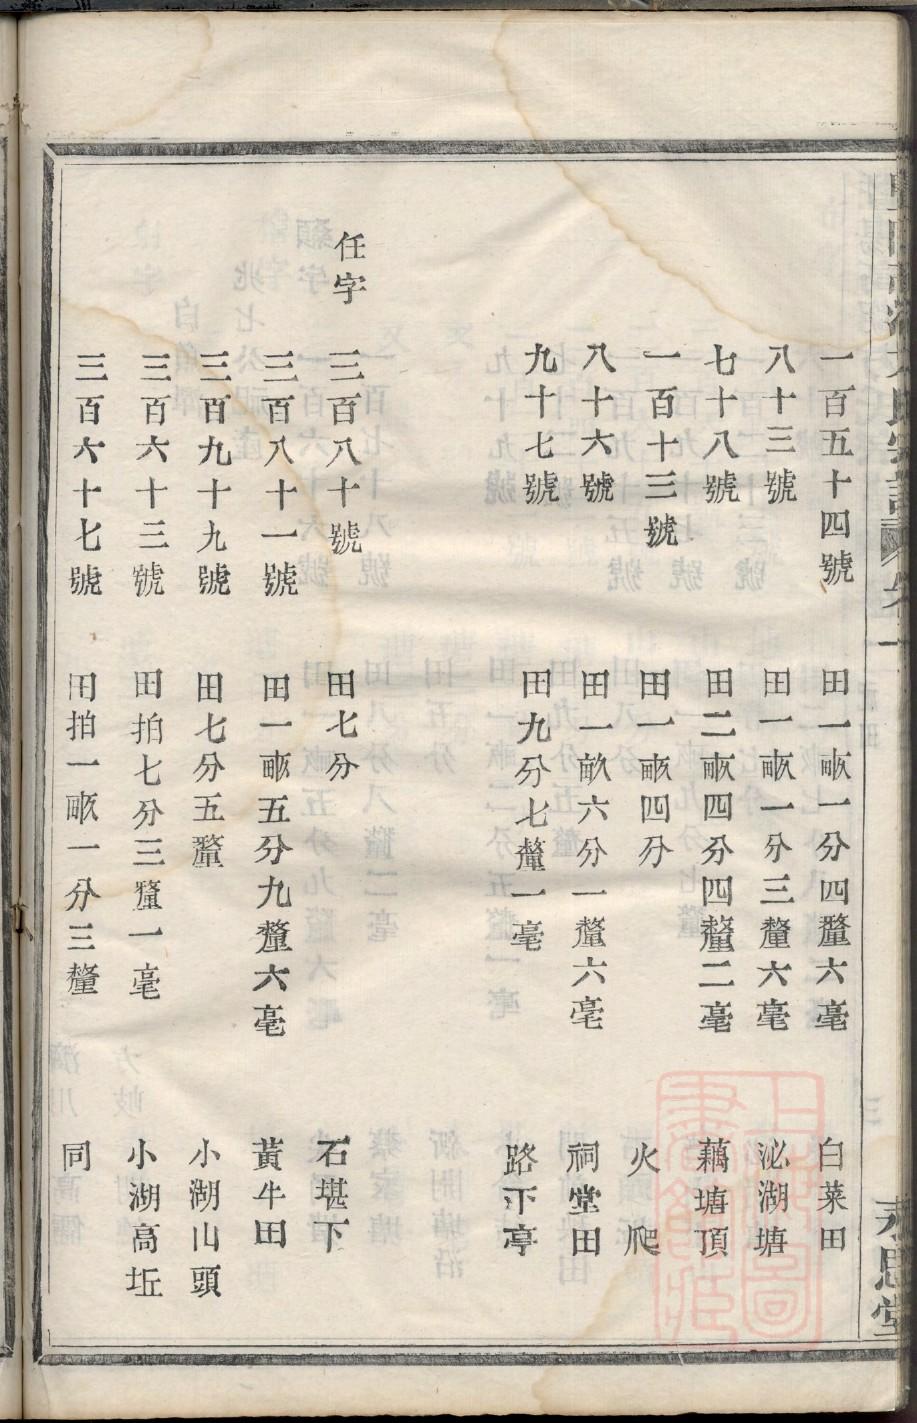 一百五十四號 田一畝一分四釐六毫 白菜田
八十三號 田一畝一分三釐六毫 泌湖塘
七十八號 田二畝四分四釐二毫 藕塘頂
一百十三號 田一畝四分 火爬
八十六號 田一畝六分一釐六毫 祠堂田
九十七號 田九分七釐一毫 路下亭
任字 三百八十號 田七分 石堪下
三百八十一號 田一畝五分九釐六毫 黃牛田
三百九十九號 田七分五釐 小湖山頭
三百六十三號 田拍七分三釐一毫 小湖高坵
三百六十七號 田拍一畝一分三釐 同